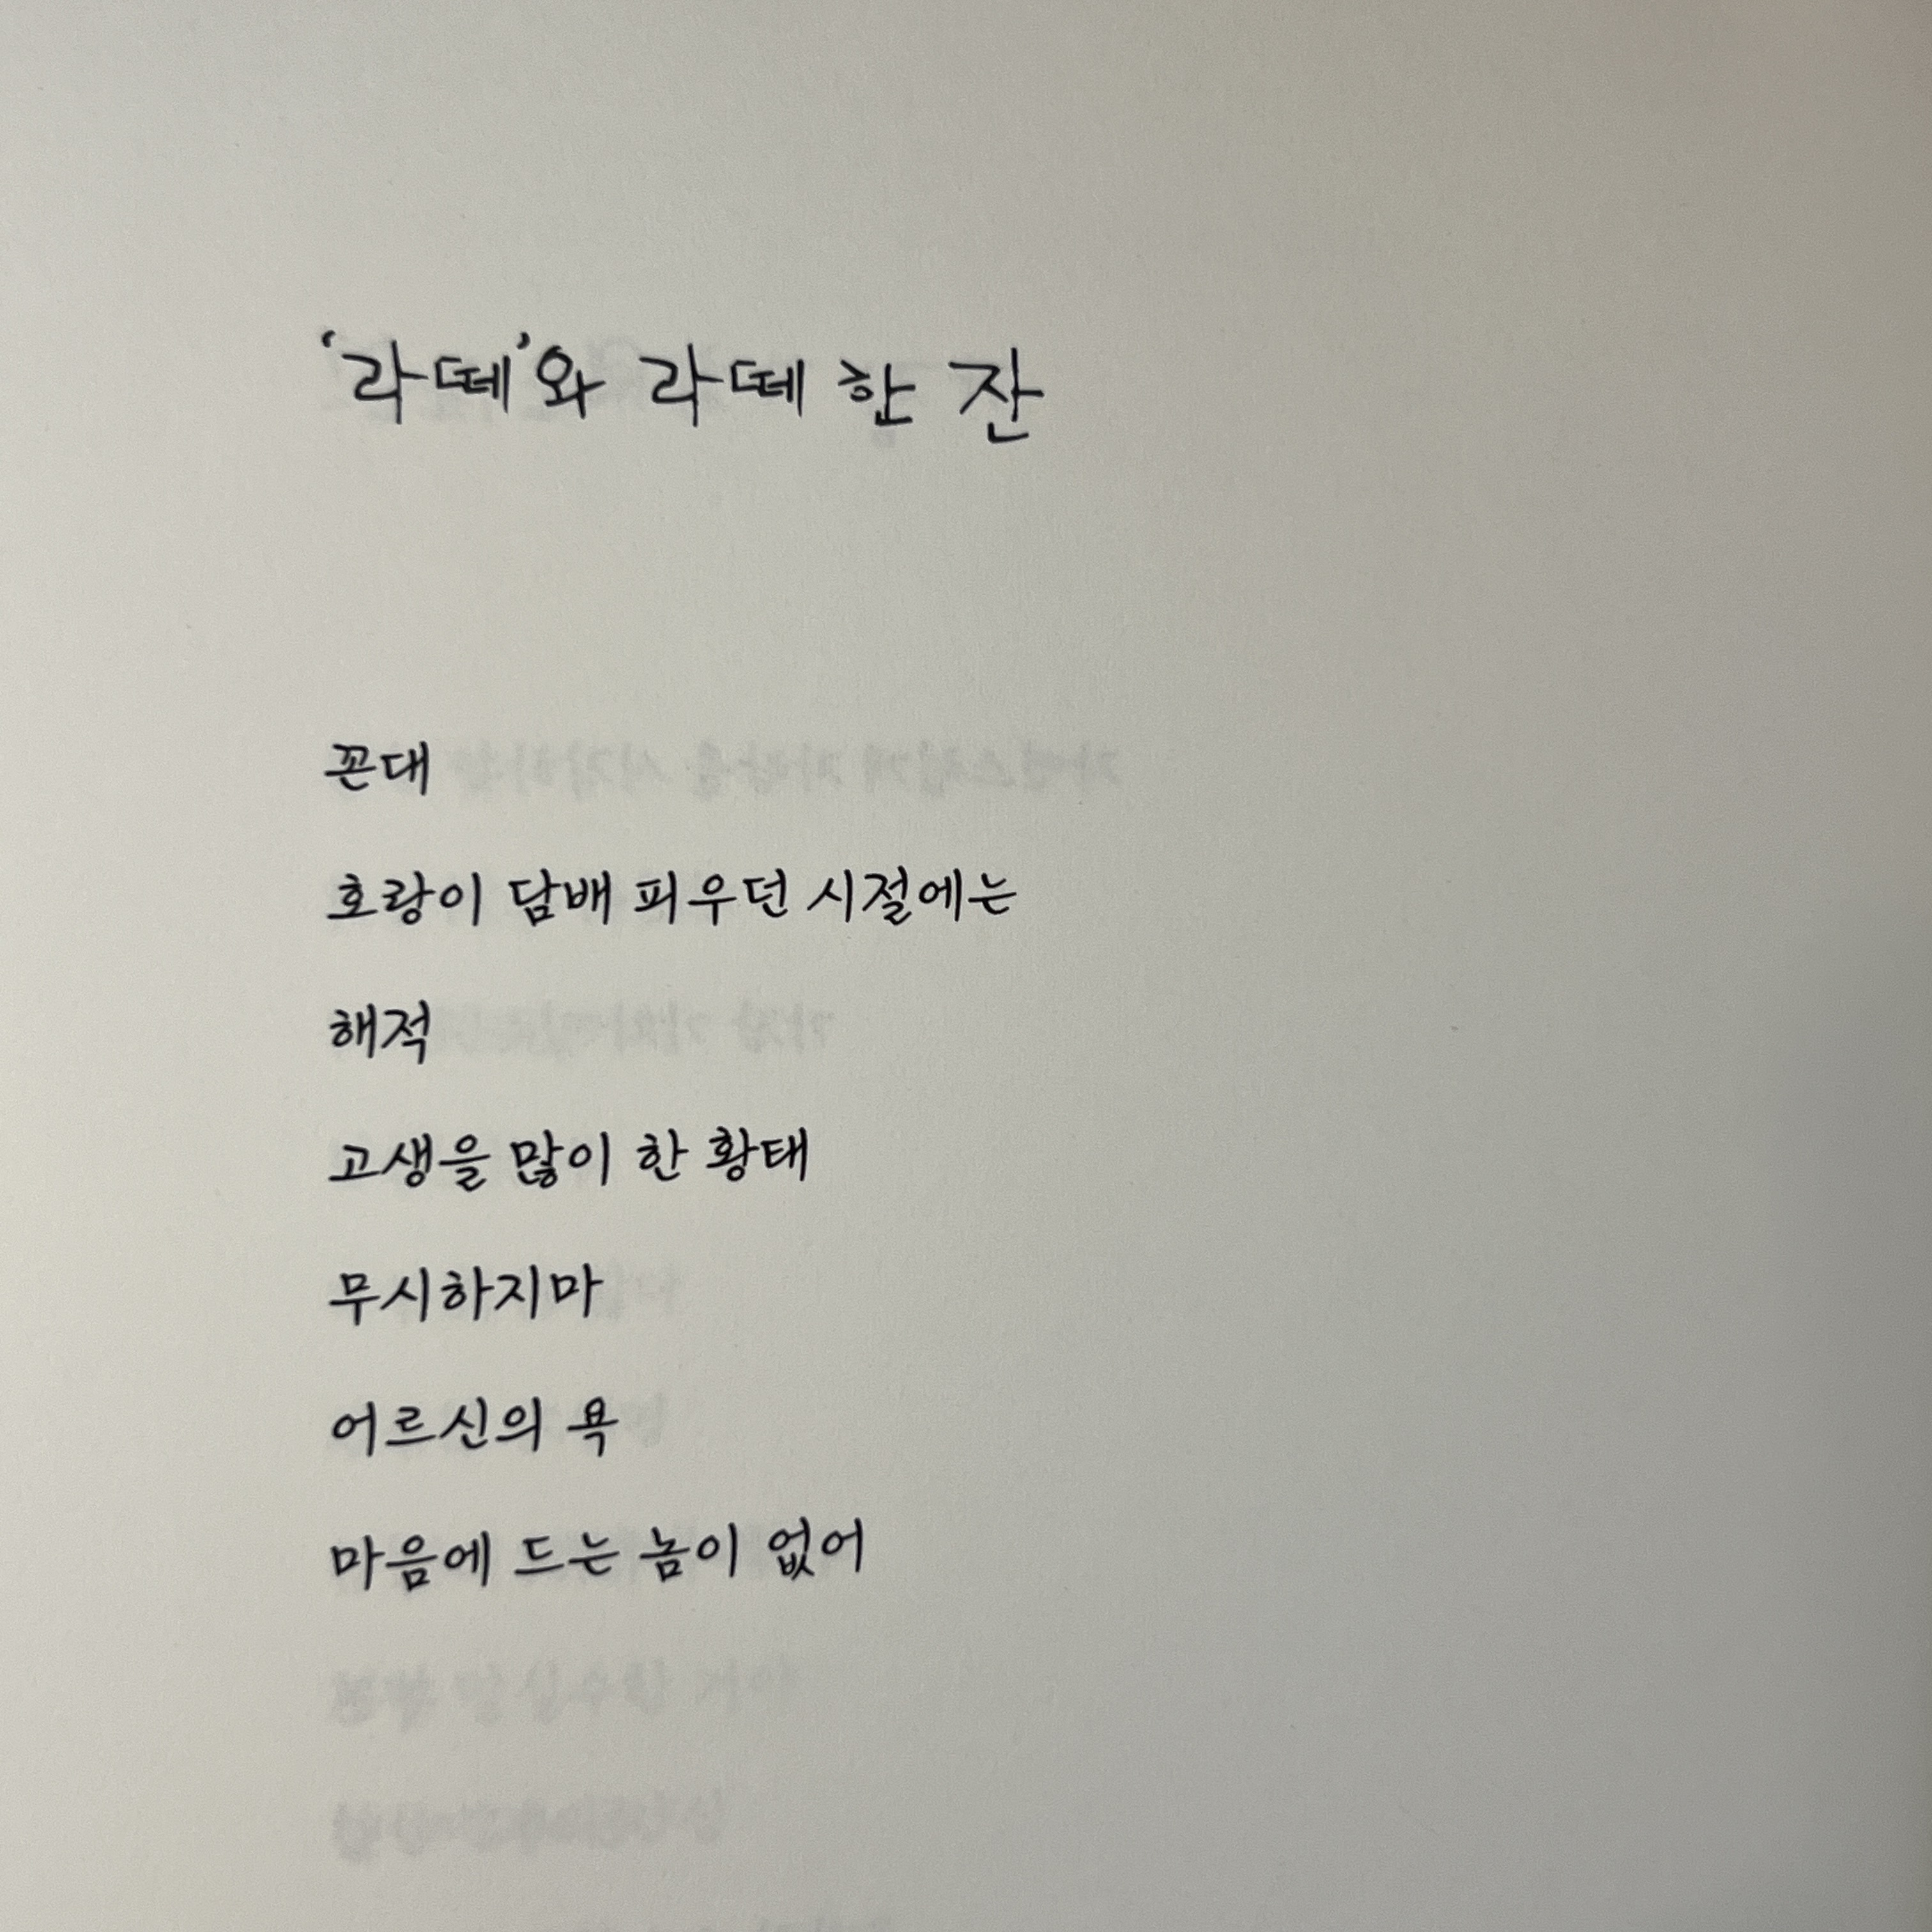 '라떼'와 라떼 한 잔
꼰대
호랑이 담배 피우던 시절에는
해적
고생을 많이 한 황태
무시하지마
어르신의 욕
마음에 드는 놈이 없어